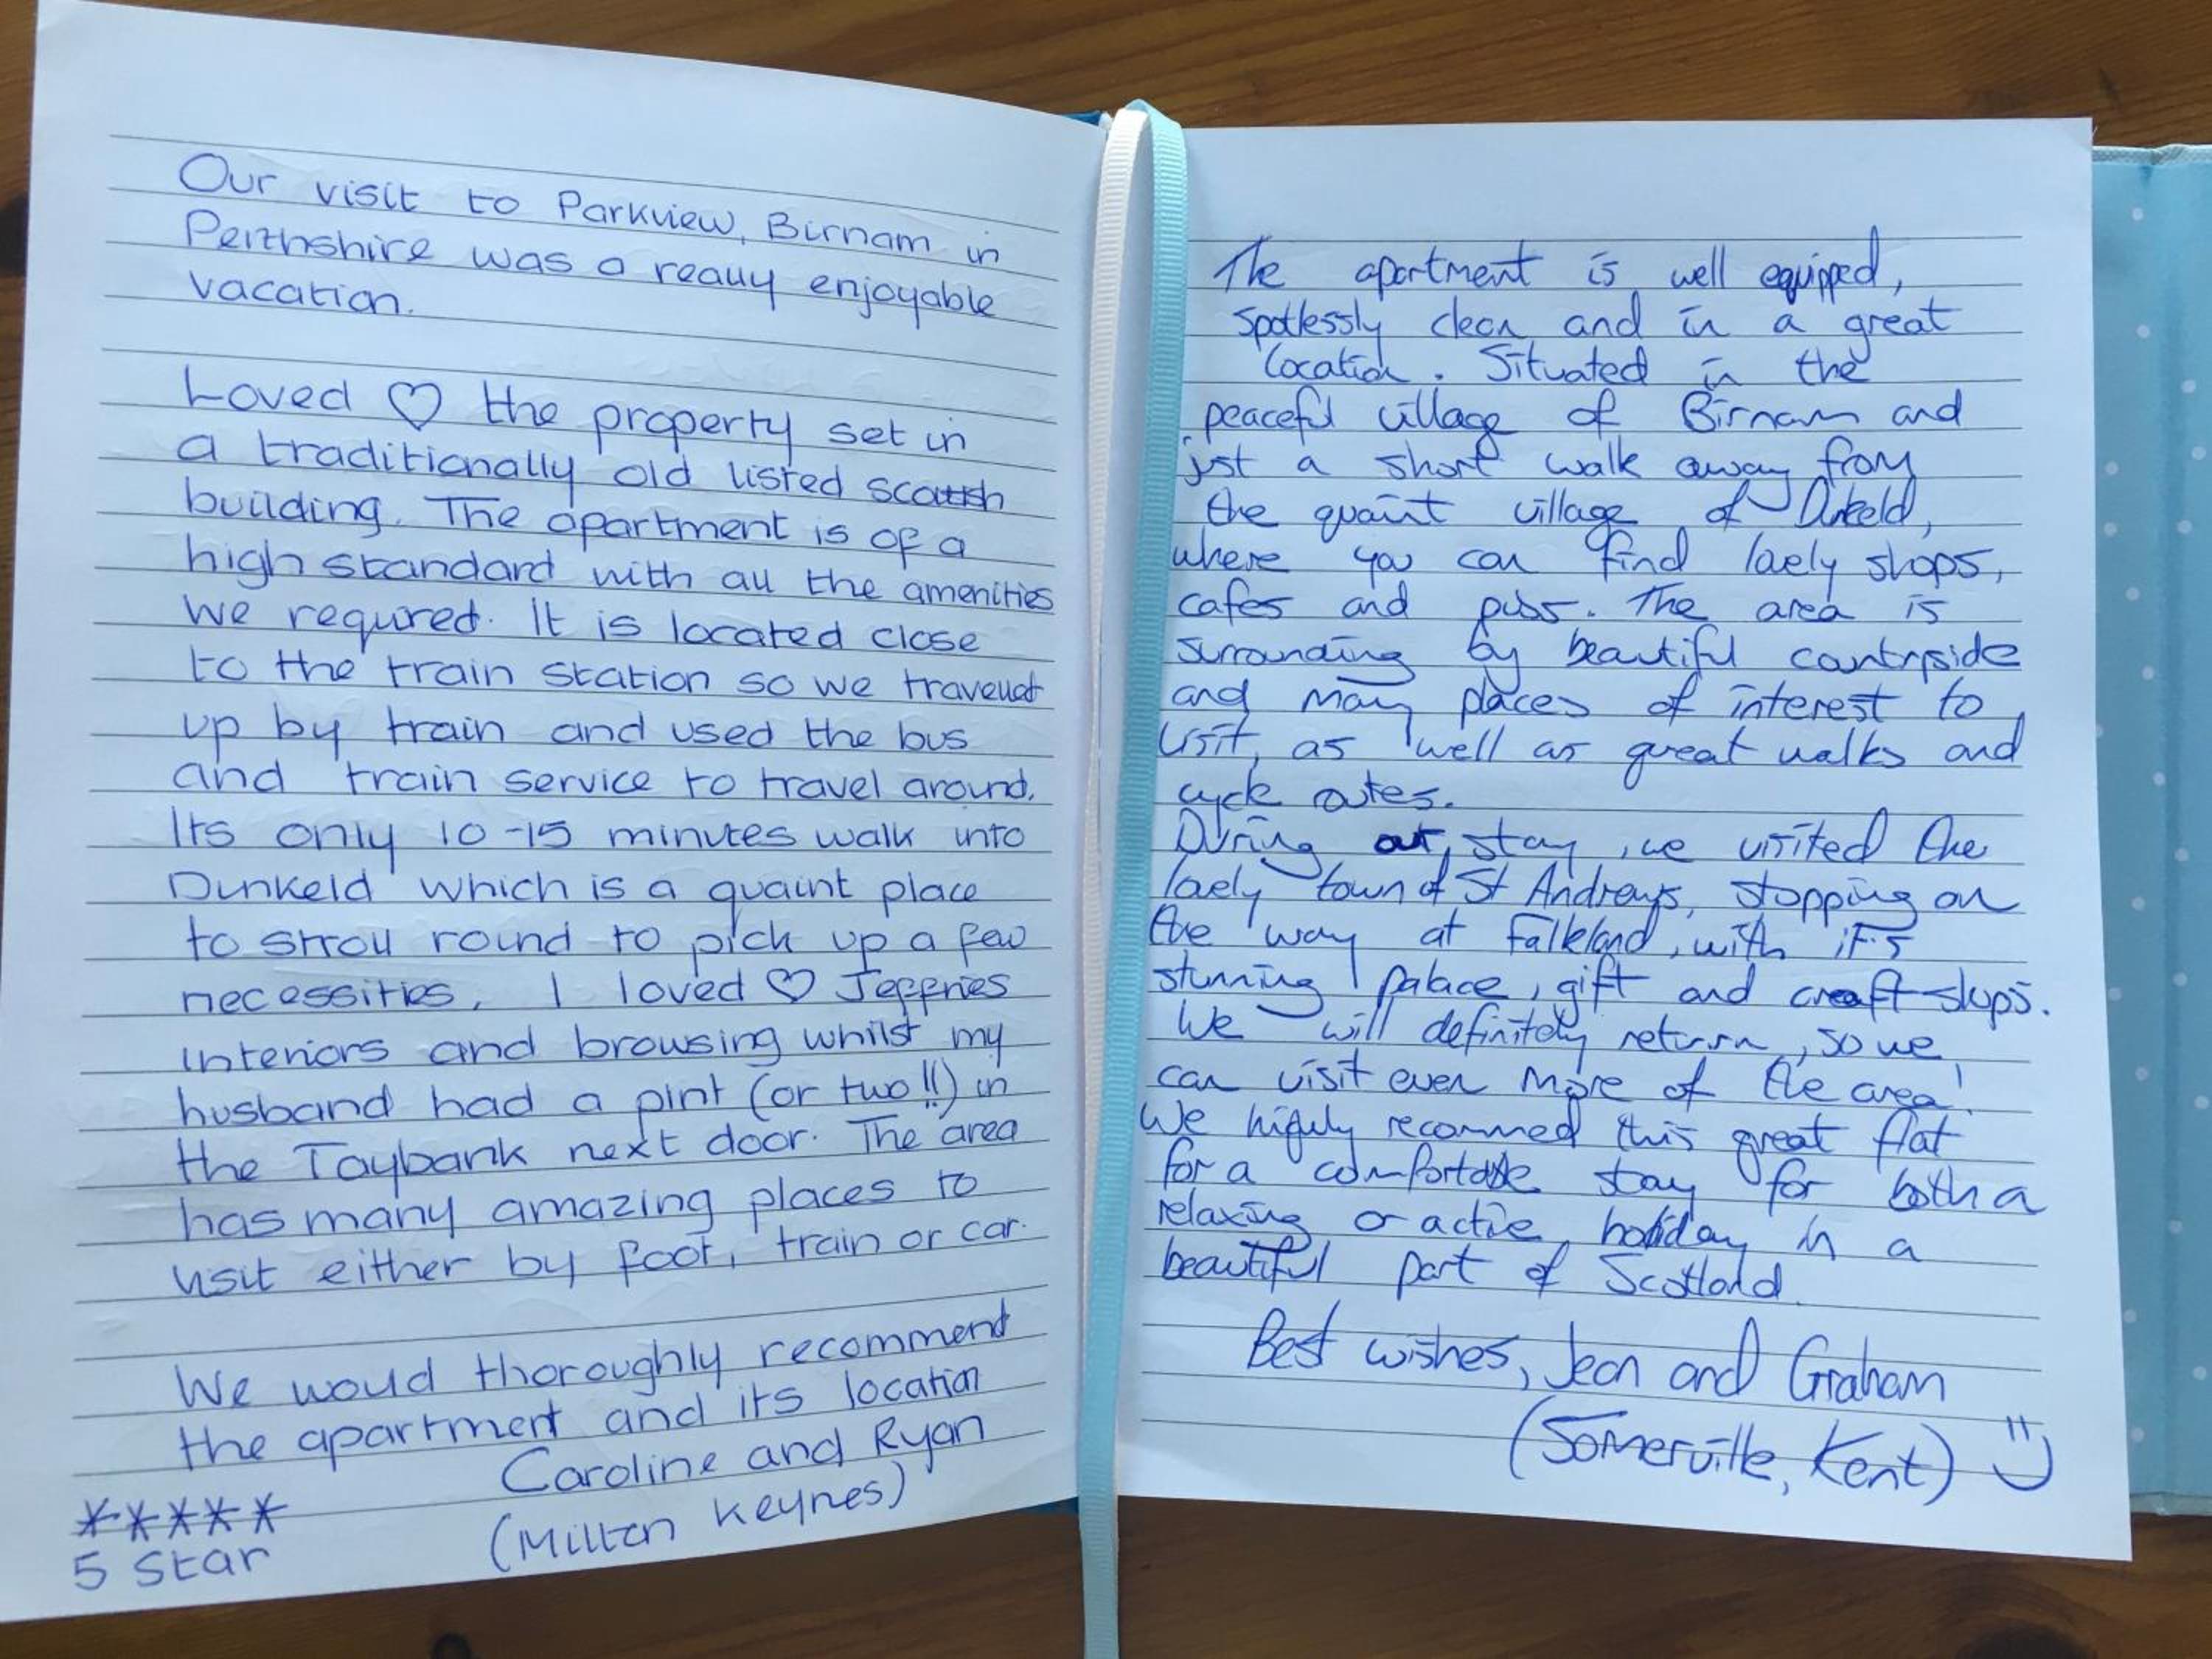 Our visit to Parkview, Birnam in
Perthshire was a really enjoyable
vacation.
Loved ♡ the property set in
a traditionally old listed scottish
building. The apartment is of a
high standard with all the amenities
we required. It is located close
to the train station so we travelled
up by train and used the bus
and train service to travel around.
Its only 10-15 minutes walk into
Dunkeld which is a quaint place
to stroll round to pick up a few
necessities. I loved ♡ Jeffries
Interiors and browsing whilst my
husband had a pint (or two!!) in
the Taybank next door. The area
has many amazing places to
visit either by foot, train or car.
We would thoroughly recommend
the apartment and its location
Caroline and Ryan
(Milton Keynes)
*****
5 Star
The apartment is well equipped,
spotlessly clean and in a great
location. Situated in the
peaceful village of Birnam and
just a short walk away from
the quaint village of Dunkeld,
where you can find lovely shops,
cafes and pubs. The area is
surrounding by beautiful countryside
and many places of interest to
visit, as well as great walks and
cycle routes.
During our stay, we visited the
lovely town of St Andrews, stopping on
the way at Falkland, with it's
stunning palace, gift and craft shops.
We will definitely return, so we
can visit even more of the area!
We highly recommed this great flat
for a comfortable stay for both a
relaxing or active holiday in a
beautiful part of Scotland.
Best wishes, Jean and Graham
(Somerville, Kent)